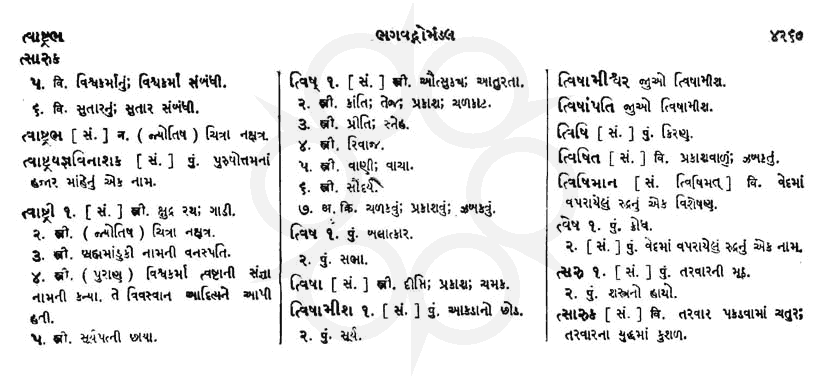 ત્વાષ્ટ્રભ
ભગવદ્ગોમંડલ
૪૨૬૭
ત્સારુક
૫. વિ. વિશ્વકર્માનું; વિશ્વકર્મા સંબંધી.
૬. વિ. સુતારનું; સુતાર સંબંધી.
ત્વાષ્ટ્રભ [ સં. ] ન. ( જ્યોતિષ ) ચિત્રા નક્ષત્ર.
ત્વાષ્ટ્રયજ્ઞવિનાશક [ સં. ] પું. પુરુષોત્તમનાં
હજાર માંહેનું એક નામ.
ત્વાષ્ટ્રી ૧. [ સં. ] સ્ત્રી. ક્ષુદ્ર રથ; ગાડી.
૨. સ્ત્રી. ( જ્યોતિષ ) ચિત્રા નક્ષત્ર.
૩. સ્ત્રી. બ્રહ્મમાંડુકી નામની વનસ્પતિ.
૪. સ્ત્રી. ( પુરાણ ) વિશ્વકર્મા ત્વષ્ટાની સંજ્ઞા
નામની કન્યા. તે વિવસ્વાન આદિત્યને આપી
હતી.
૫. સ્ત્રી. સૂર્યપત્ની છાયા.
ત્વિષ્ ૧. [ સં. ] સ્ત્રી. ઔત્સુક્ય; આતુરતા.
૨. સ્ત્રી. કાંતિ; તેજ; પ્રકાશ; ચળકાટ.
૩. સ્ત્રી. પ્રીતિ; સ્નેહ.
૪. સ્ત્રી. રિવાજ.
૫. સ્ત્રી. વાણી; વાચા.
૬. સ્ત્રી. સૌંદર્ય.
૭. અ. ક્રિ. ચળકવું; પ્રકાશવું; ઝબકવું.
ત્વિષ ૧. પું. બલાત્કાર.
૨. પું. સભા.
ત્વિષા [ સં. ] સ્ત્રી. દીપ્તિ; પ્રકાશ; ચમક.
ત્વિષામીશ ૧. [ સં. ] પું. આકડાનો છોડ.
૨. પું. સૂર્ય.
ત્વિષામીશ્વર જુઓ ત્વિષામીશ.
ત્વિષાંપતિ જુઓ ત્વિષામીશ.
ત્વિષિ [ સં. ] પું. કિરણ.
ત્વિષિત [ સં. ] વિ. પ્રકાશવાળું; ઝબકતું.
ત્વિષિમાન [ સં. ત્વિષિમત્ ] વિ. વેદમાં
વપરાયેલું રુદ્રનું એક વિશેષણ.
ત્વેષ ૧. પું. ક્રોધ.
૨. [ સં. ] પું. વેદમાં વપરાયેલું રુદ્રનું એક નામ.
ત્સરુ ૧. [ સં. ] પું. તરવારની મૂઠ.
૨. પું. શસ્ત્રનો હાથો.
ત્સારુક [ સં. ] વિ. તરવાર પકડવામાં ચતુર;
તરવારના યુદ્ધમાં કુશળ.